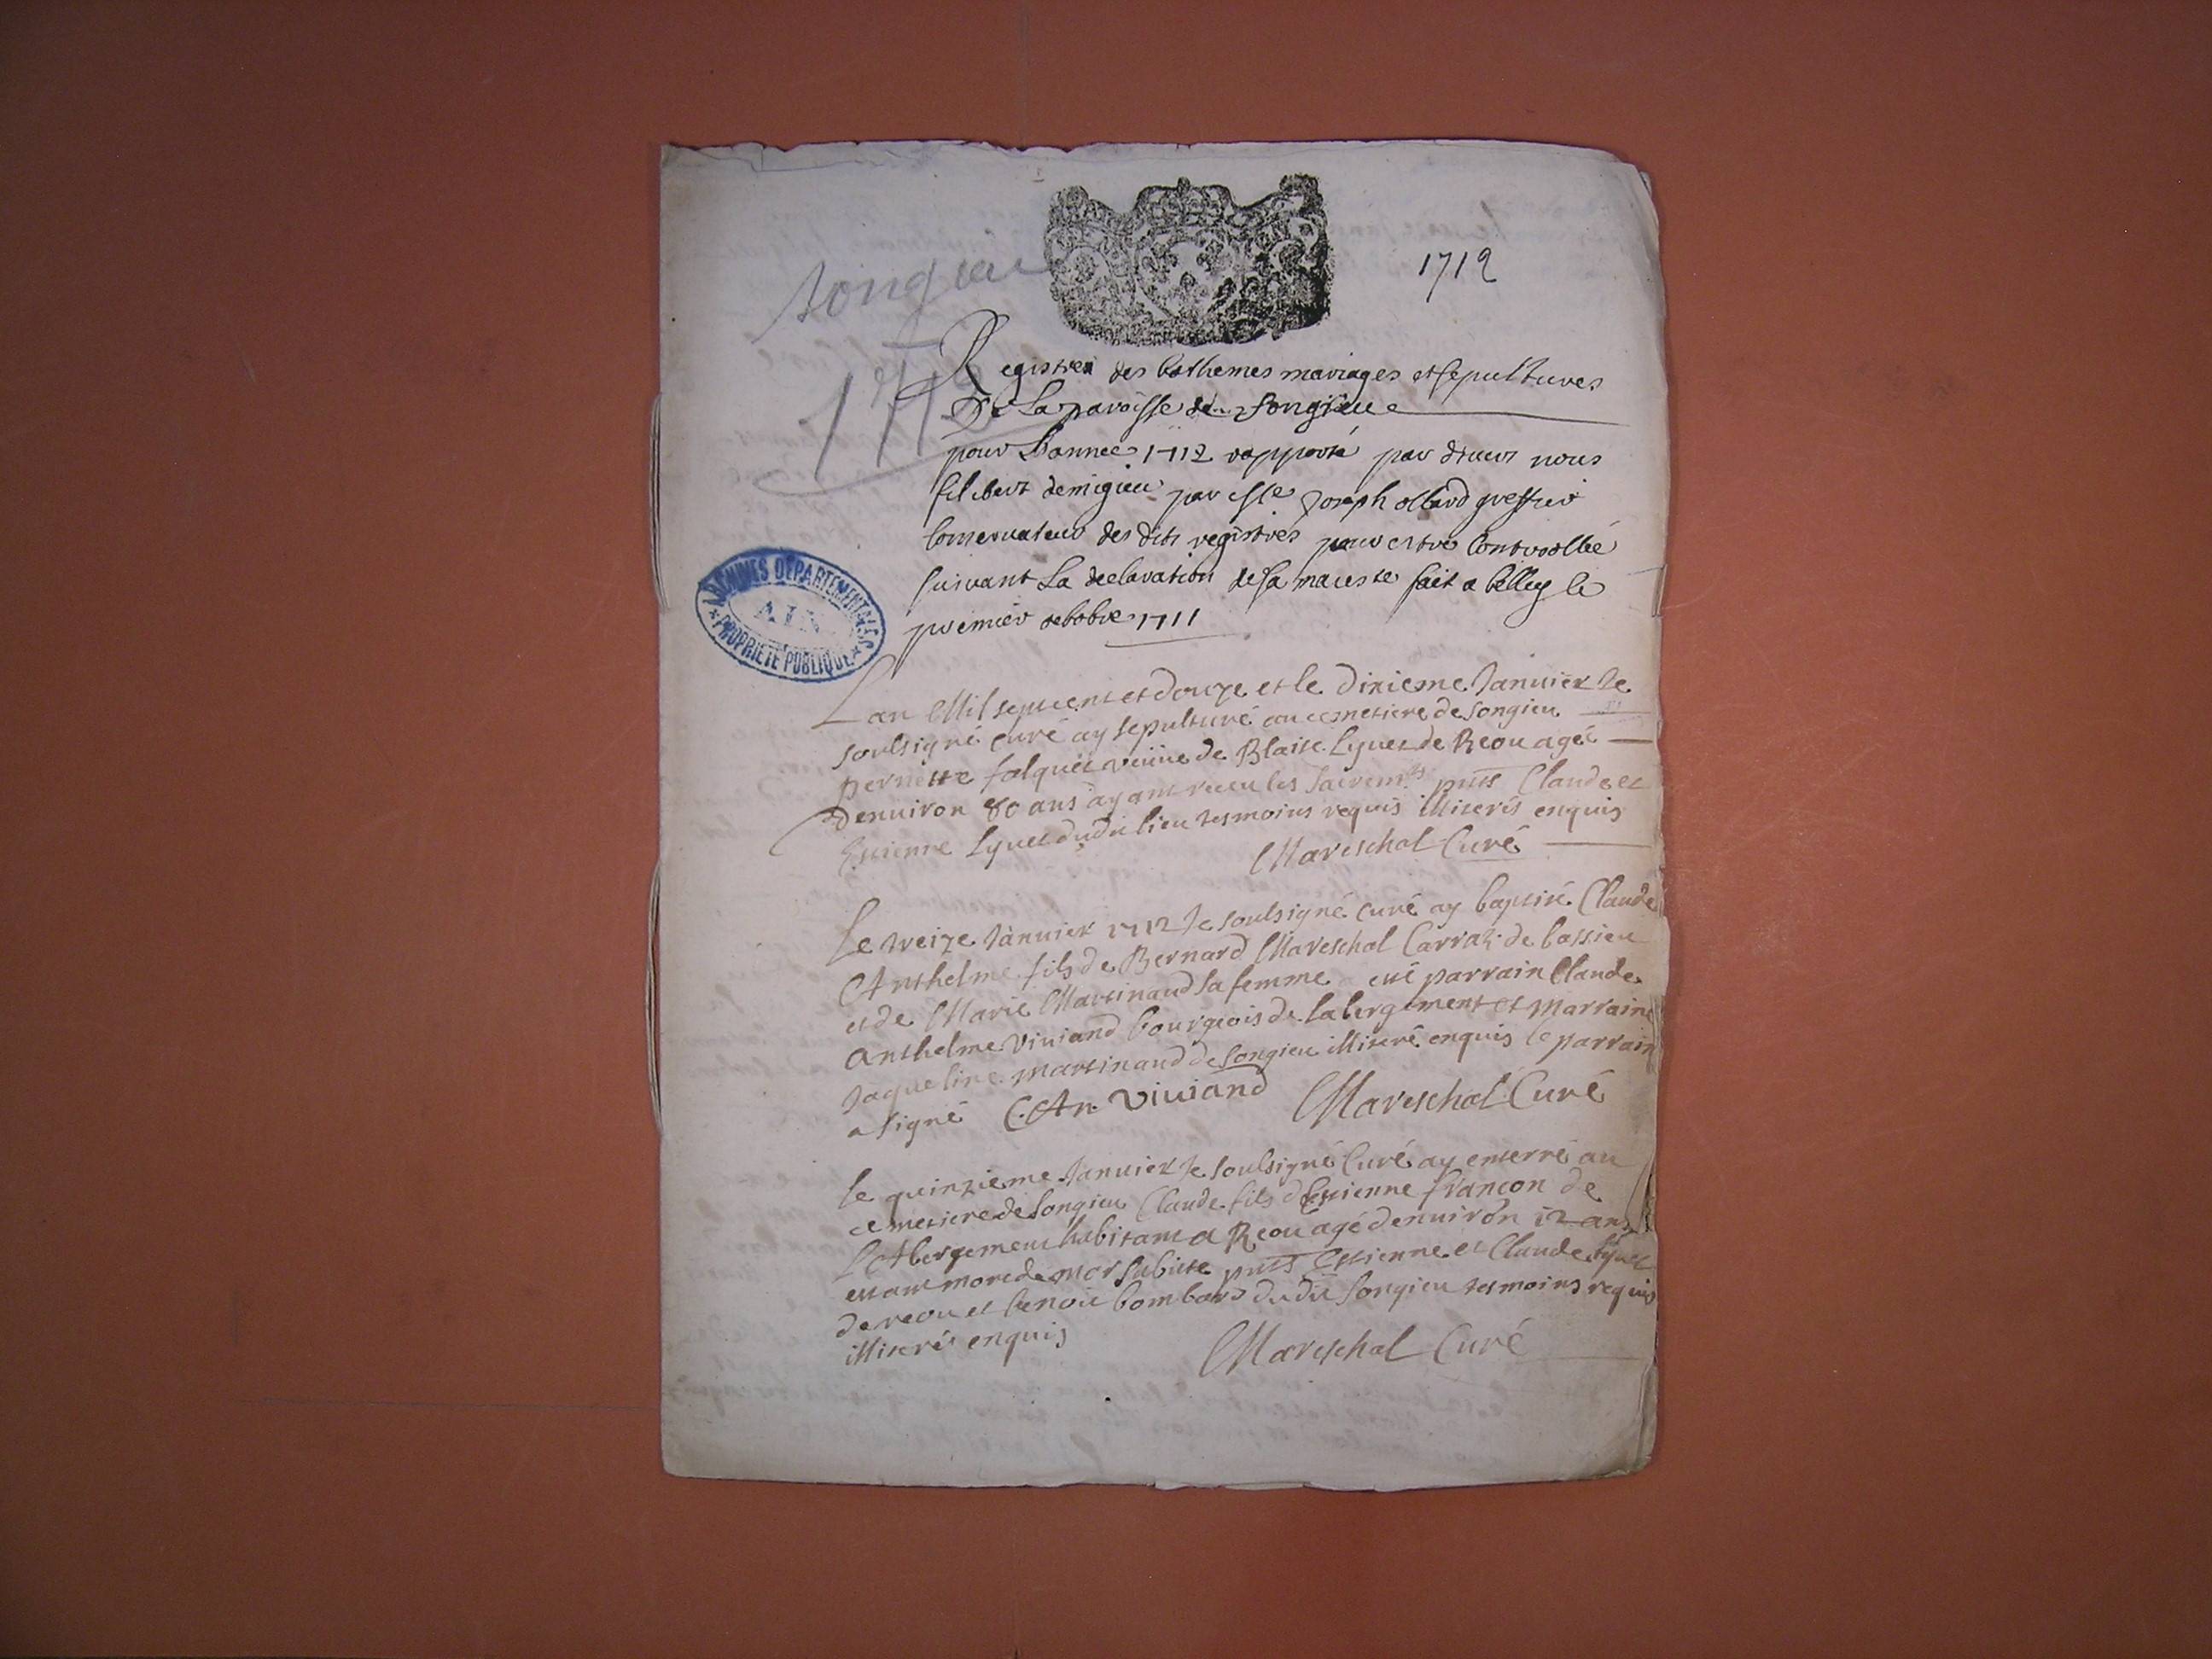 1712
songieu
1712
Registres des bathemes mariages et sepultures
De La paroisse de songieu
pour L'annee 1712 rapporté par devers nous
filibert demigieu par Me Joseph ollard greffier
Conservateur des dits registres pour estre Controollée
suivant La declaration de sa maieste fait a belley le
premier octobre 1711
ARCHIVES DEPARTEMENTALES
AIN
PROPRIETE PUBLIQUE
Lan Mil sept cent et douze et le dixieme Januier Je
soulsigné curé ay sepulturé au cemetiere de songieu
pernette falquet veüue de Blaise Lyuet de Reou agée
denuiron 80 ans ayant receu les sacremts pnts Claude et
Estienne Lyuet dudit lieu tesmoins requis illiterés enquis
Mareschal Curé
Le treize Januier 1712 Je soulsigné Curé ay baptisé Claude
Anthelme fils de Bernard Mareschal Carraz de bassieu
et de Marie Martinand sa femme a eté parrain Claude
Anthelme Viuiand bourgeois de Labergement et Marraine
Jaqueline Martinand de Songieu illiteré enquis le parrain
a signé C. An. Viuiand Mareschal Curé
Le quinzieme Januier Je soulsigné Curé ay enterré au
cemetiere de Songieu Claude fils d'Estienne françon de
L'Abergement habitant a Reou agé denuiron 12 ans
estant mort de mor subitte pnts Estienne et Claude Lyuet
de reou et benoit bombard dudit Songieu tesmoins requis
illiterés enquis
Mareschal Curé